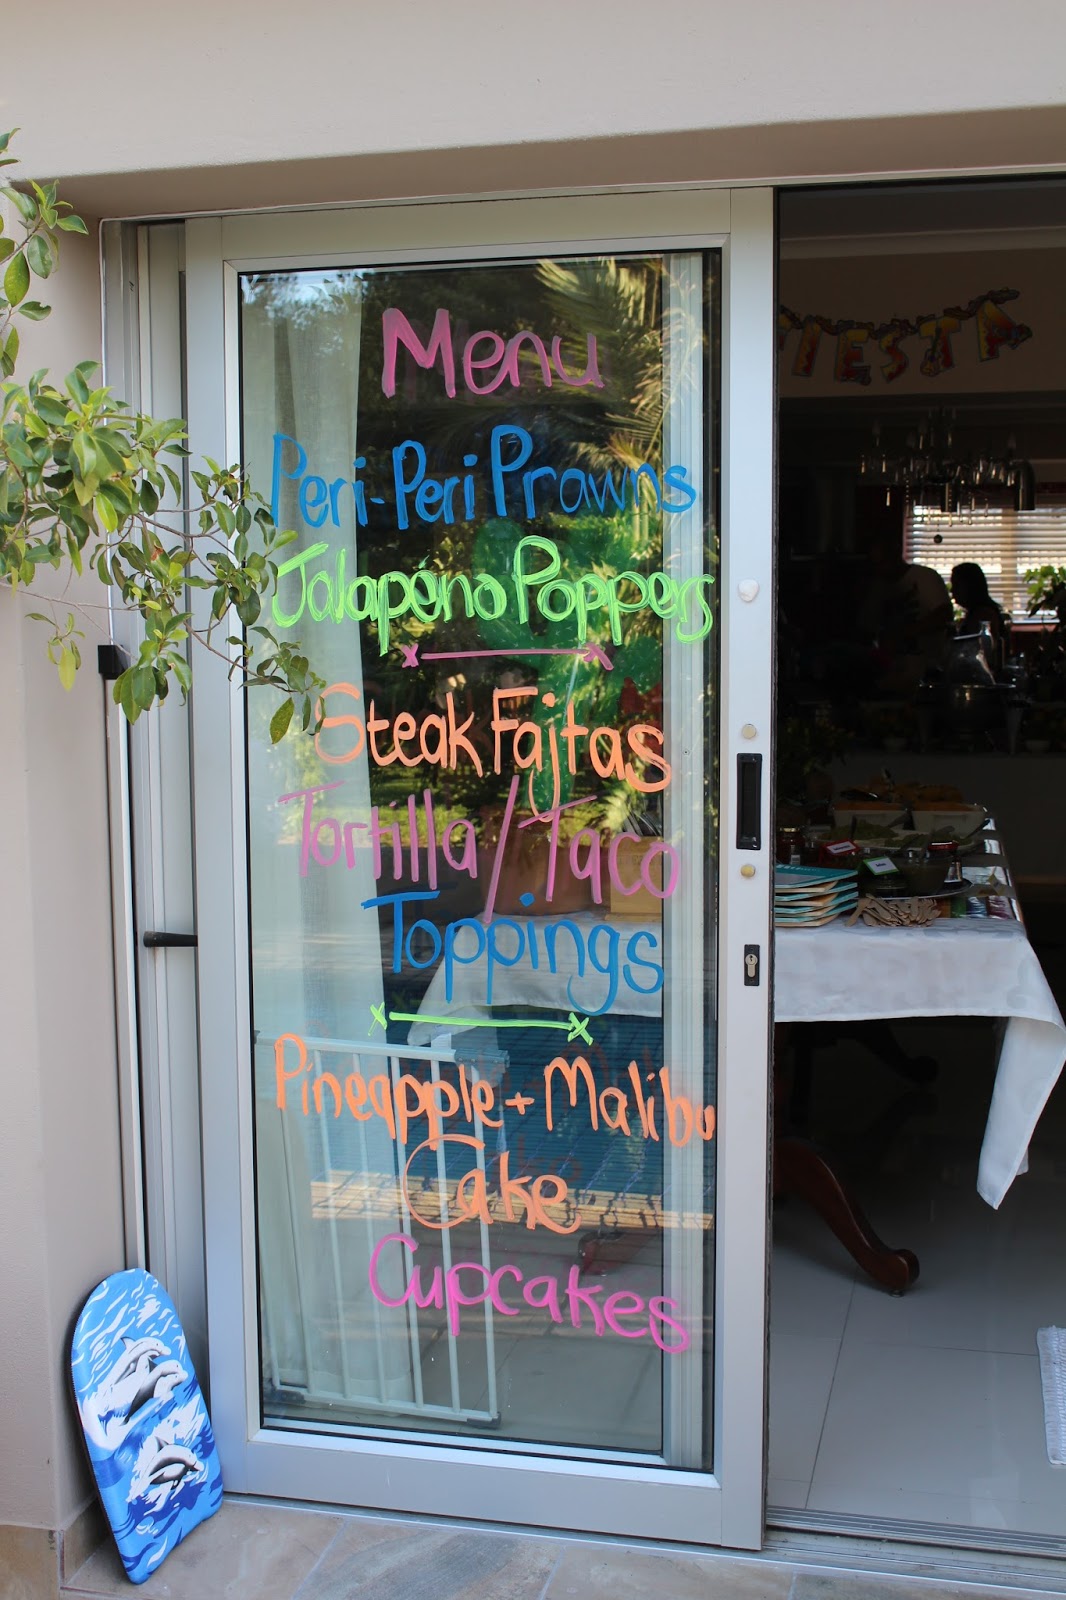 Menu
Peri-Peri Prawns
Jalapéno Poppers
Steak Fajitas
Tortilla/Taco
Toppings
Pineapple + Malibu
Cake
Cupcakes
FIESTA